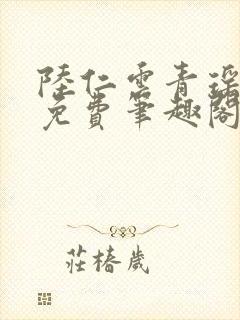 陸仁雲青瑶
免費筆趣閣
莊椿歲